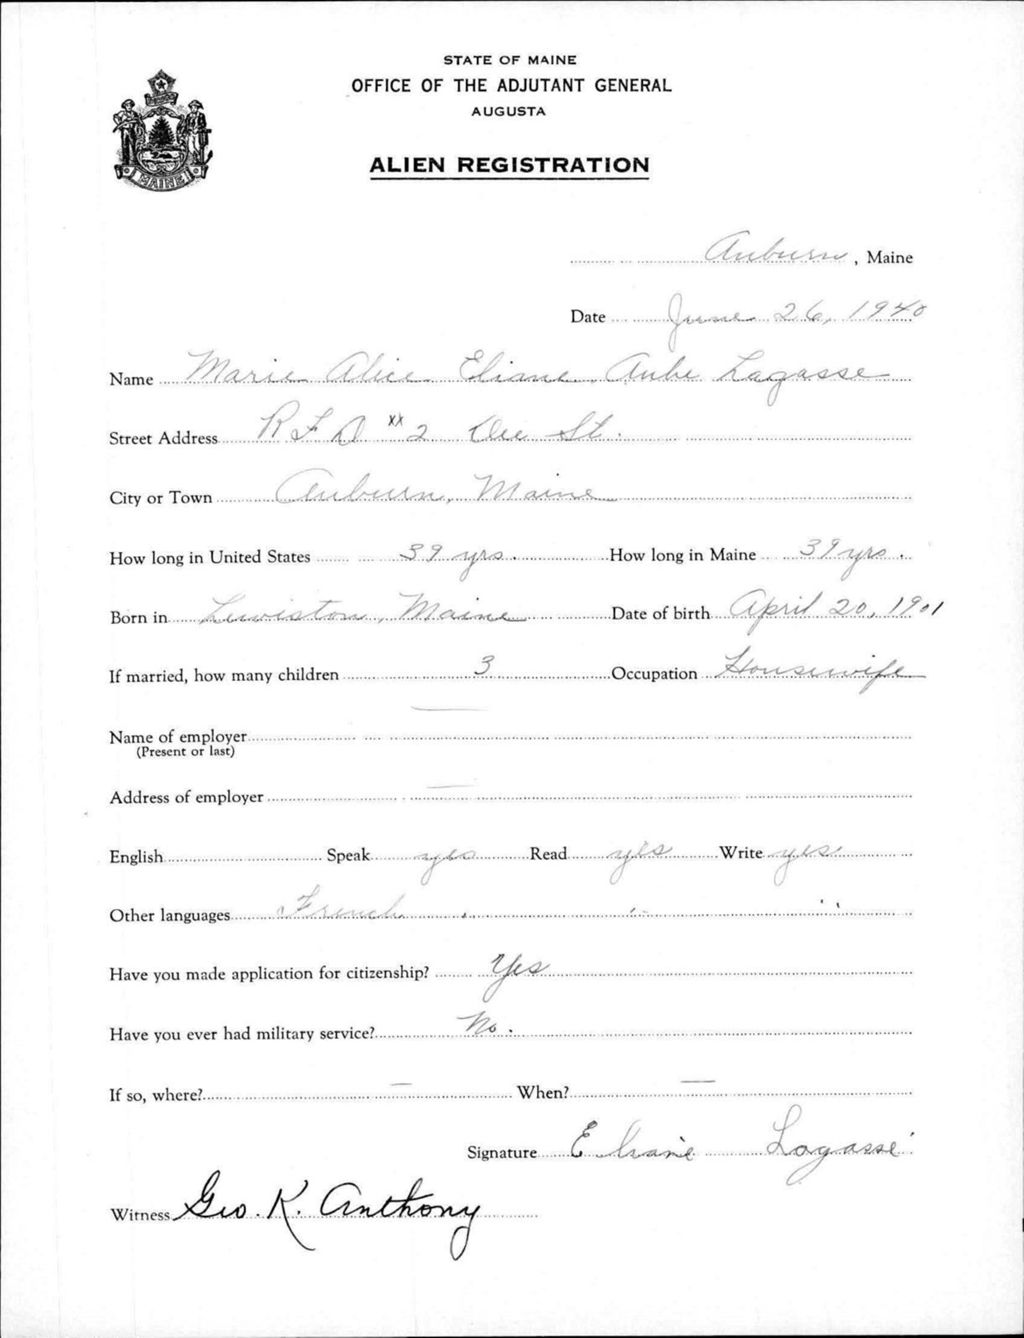 STATE OF MAINE
OFFICE OF THE ADJUTANT GENERAL
AUGUSTA
MAINE
ALIEN REGISTRATION
Auburn, Maine
Date June 26, 1940
Name Marie Alice Eliane Aube Lagasse
Street Address R F D xx 2 St.
City or Town Auburn, Maine
How long in United States 39 yrs. How long in Maine 39 yrs.
Born in Lewiston, Maine Date of birth April 20, 1901
If married, how many children 3 Occupation Housewife
Name of employer —
(Present or last)
Address of employer —
English Speak yes Read yes Write yes
Other languages French " "
Have you made application for citizenship? Yes
Have you ever had military service? No.
If so, where? — When? —
Signature Eliane Lagasse
Witness Geo. K. Anthony